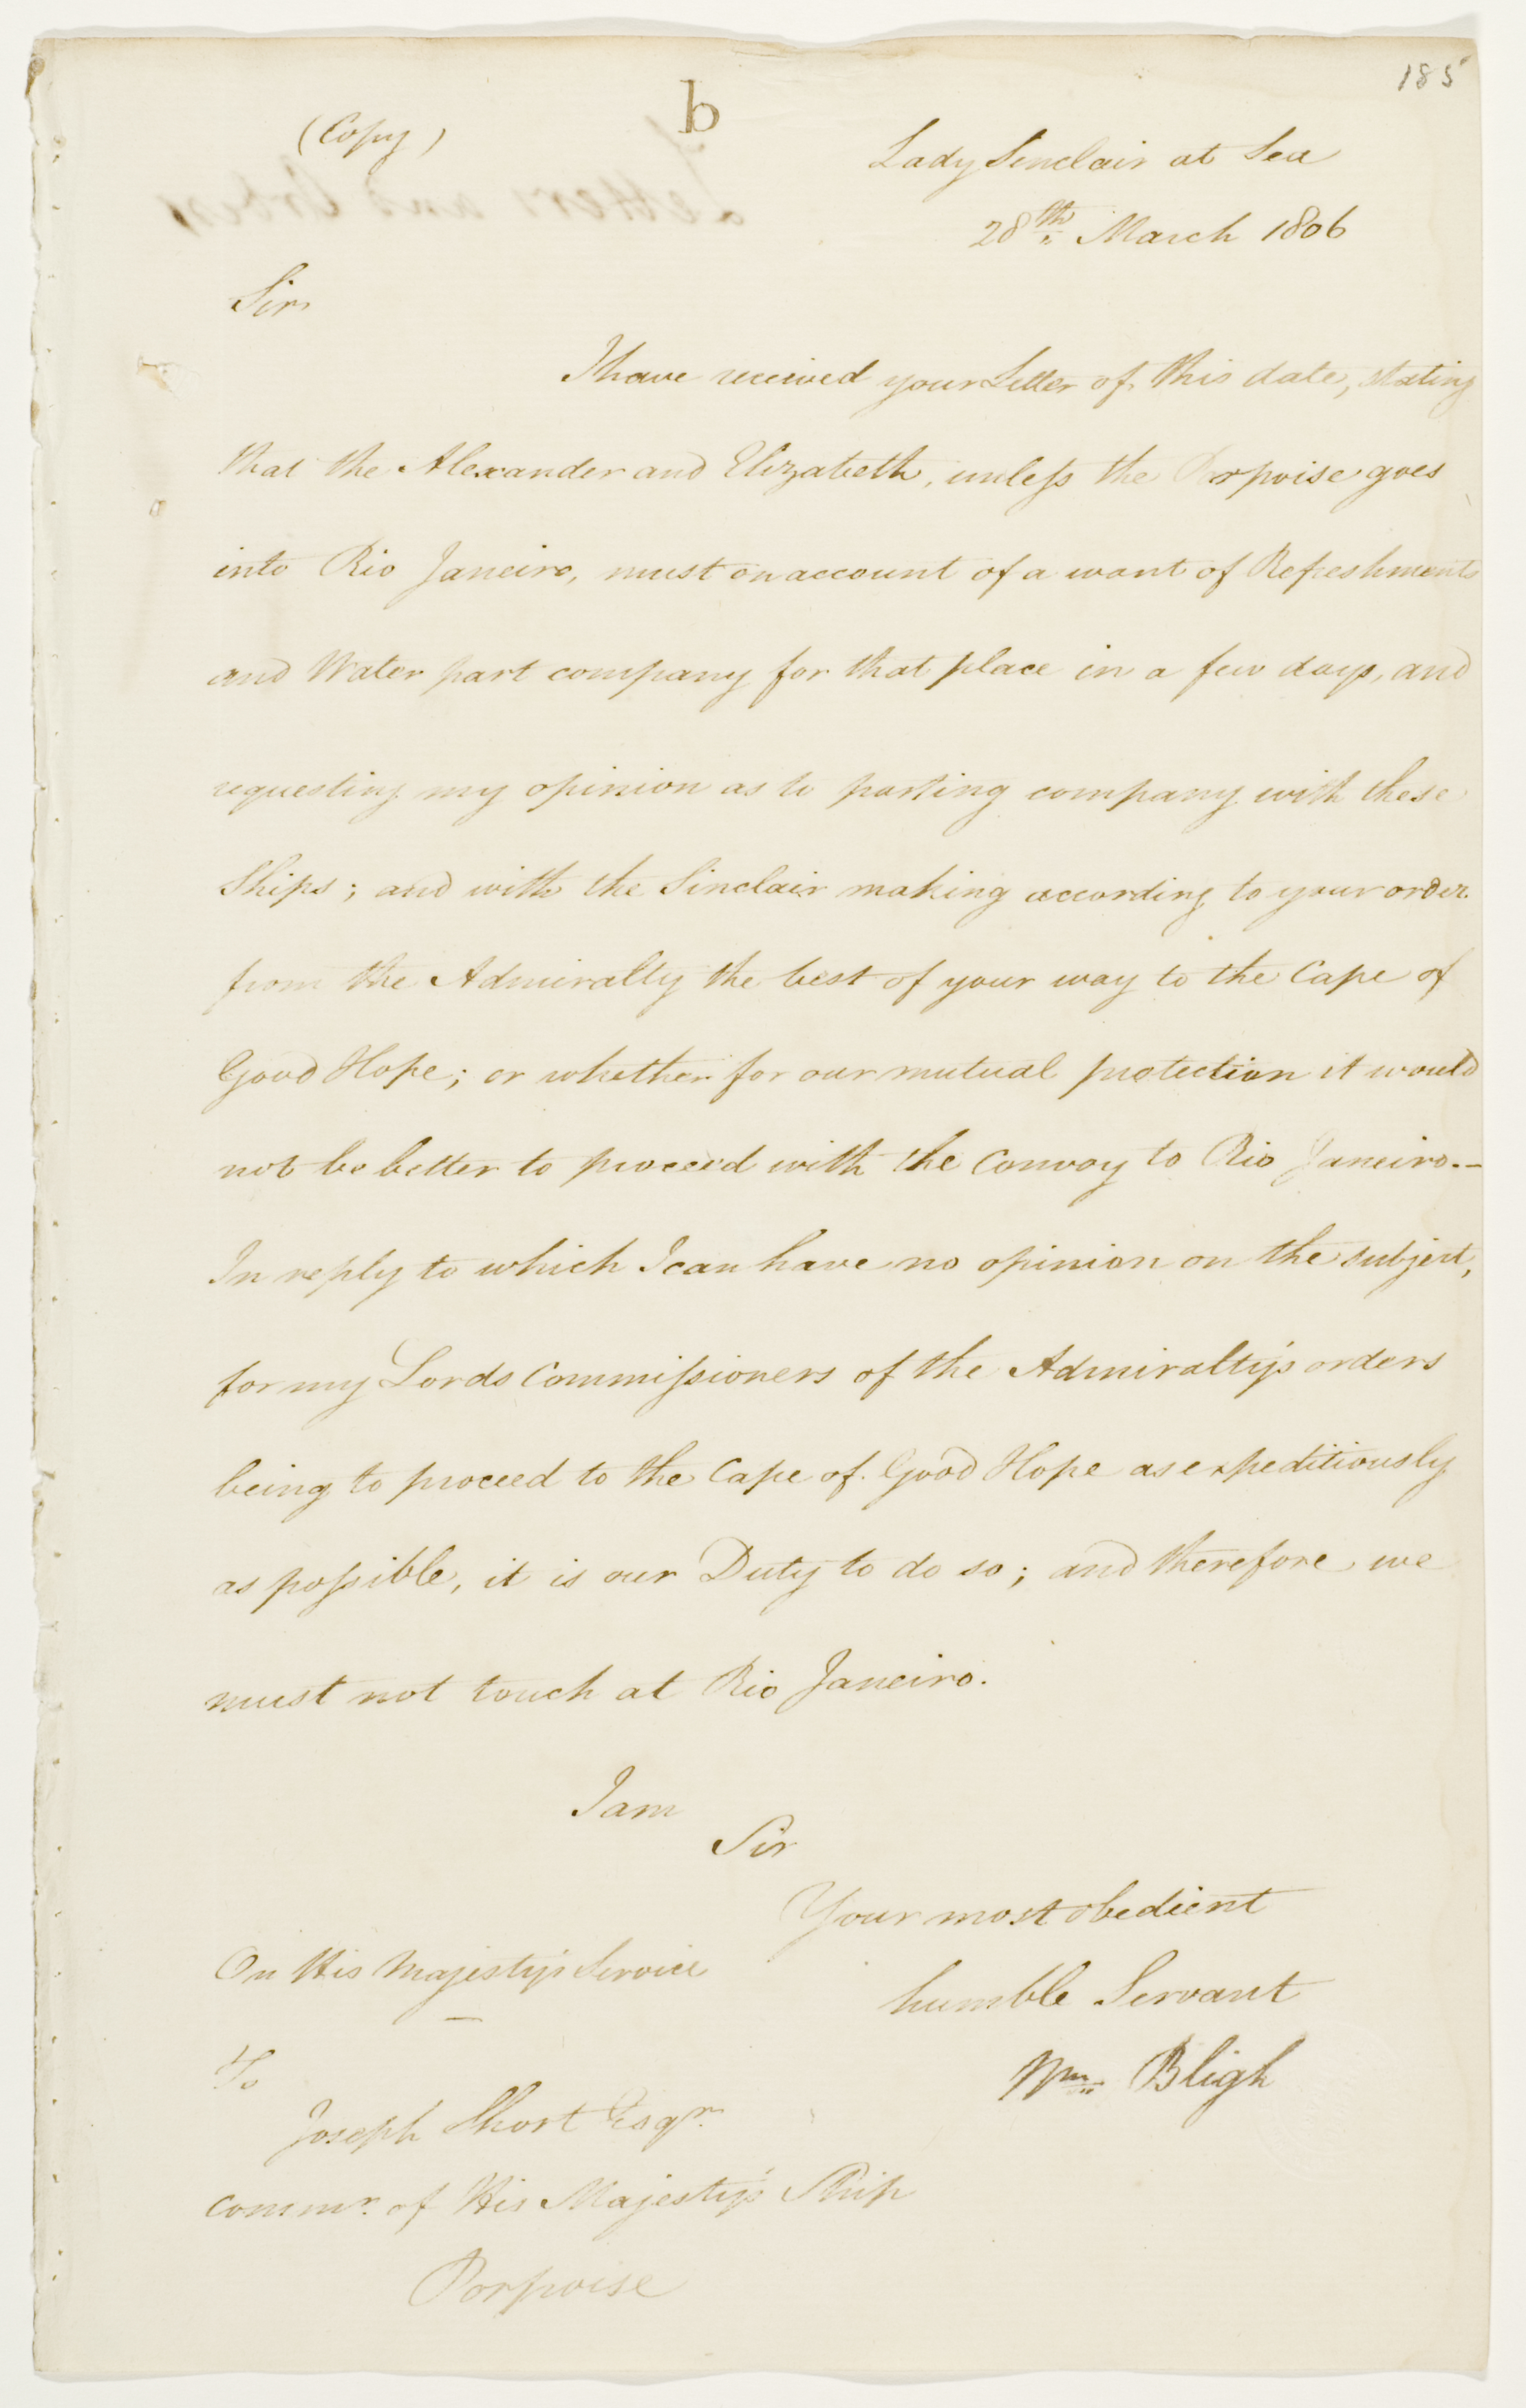 185
b
(Copy)
Lady Sinclair at Sea
28th March 1806
Sir
I have received your Letter of this date, stating
that the Alexander and Elizabeth, unless the Porpoise goes
into Rio Janeiro, must on account of a want of Refreshments
and Water part company for that place in a few days, and
requesting my opinion as to parting company with these
Ships; and with the Sinclair making according to your order
from the Admiralty the best of your way to the Cape of
Good Hope; or whether for our mutual protection it would
not be better to proceed with the Convoy to Rio Janeiro.—
In reply to which I can have no opinion on the subject,
for my Lords Commissioners of the Admiralty's orders
being to proceed to the Cape of Good Hope as expeditiously
as possible, it is our Duty to do so; and therefore we
must not touch at Rio Janeiro.
I am
Sir
Your most obedient
humble Servant
Wm. Bligh
On His Majesty's Service
To
Joseph Short Esqr.
Commr. of His Majesty's Ship
Porpoise